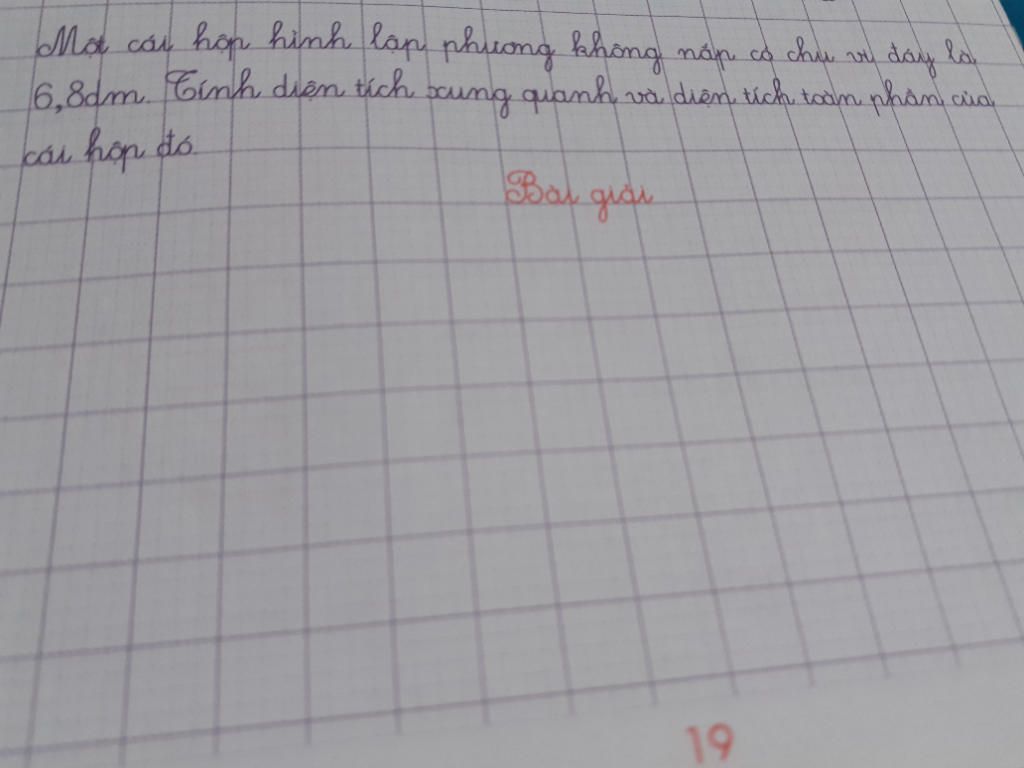 Một cái hộp hình lập phương không nắp có chu vi đáy là
6,8dm. Tính diện tích xung quanh và diện tích toàn phần của
cái hộp đó.
Bài giải
19